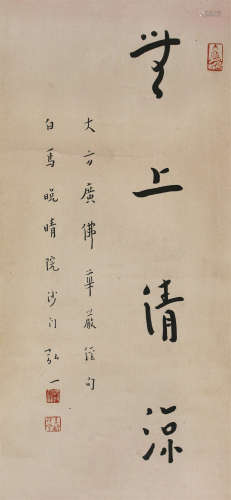 無上清涼
大方廣佛華嚴經句
白馬晚晴院沙門弘一